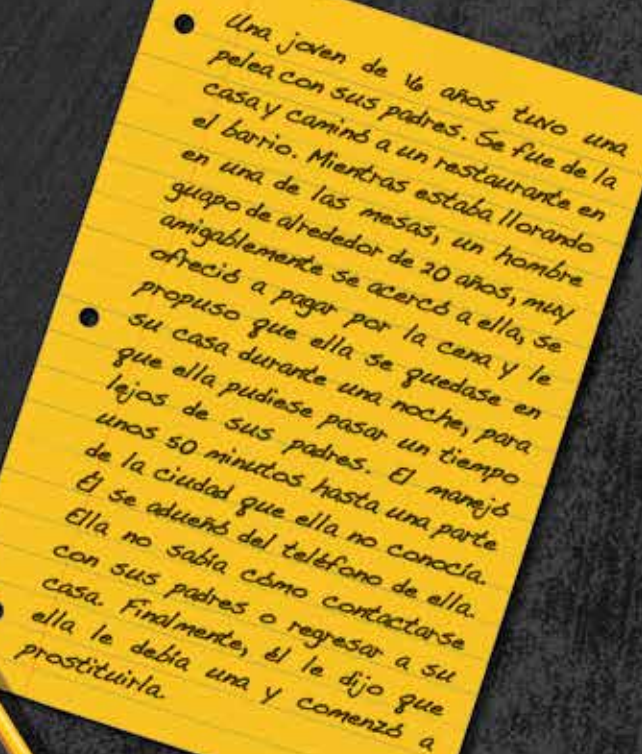 Una joven de 16 años tuvo una
pelea con sus padres. Se fue de la
casa y caminó a un restaurante en
el barrio. Mientras estaba llorando
en una de las mesas, un hombre
guapo de alrededor de 20 años, muy
amigablemente se acercó a ella, se
ofreció a pagar por la cena y le
propuso que ella se quedase en
su casa durante una noche, para
que ella pudiese pasar un tiempo
lejos de sus padres. El manejó
unos 50 minutos hasta una parte
de la ciudad que ella no conocía.
Él se adueñó del teléfono de ella.
Ella no sabía cómo contactarse
con sus padres o regresar a su
casa. Finalmente, él le dijo que
ella le debía una y comenzó a
prostituirla.